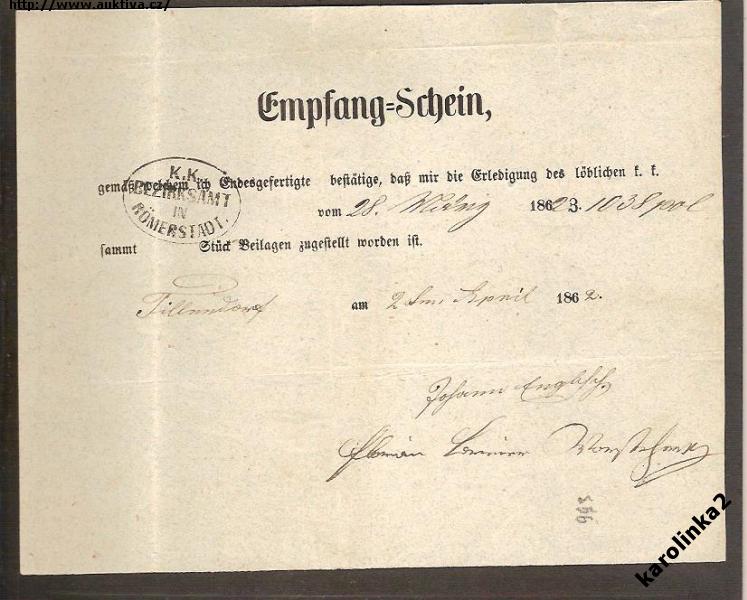 http://www.auktiva.cz/
Empfang=Schein,
K.K.
BEZIRKSAMT
IN
RÖMERSTADT.
gemäß welchem ich Endesgefertigte bestätige, daß mir die Erledigung des löblichen k. k.
vom 28. 1862 3. 1038 pol
sammt Stück Beilagen zugestellt worden ist.
Tillendorf am 2 April 1862.
Johann Englisch
Florian Vorsteher
366
karolinka2